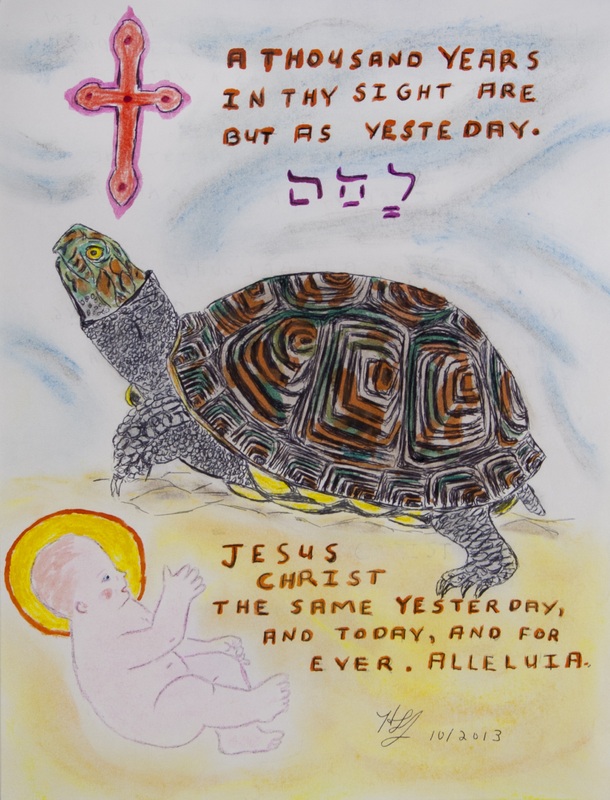 A THOUSAND YEARS
IN THY SIGHT ARE
BUT AS YESTE DAY.
JESUS
CHRIST
THE SAME YESTERDAY,
AND TODAY, AND FOR
EVER. ALLELUIA.
10/2013